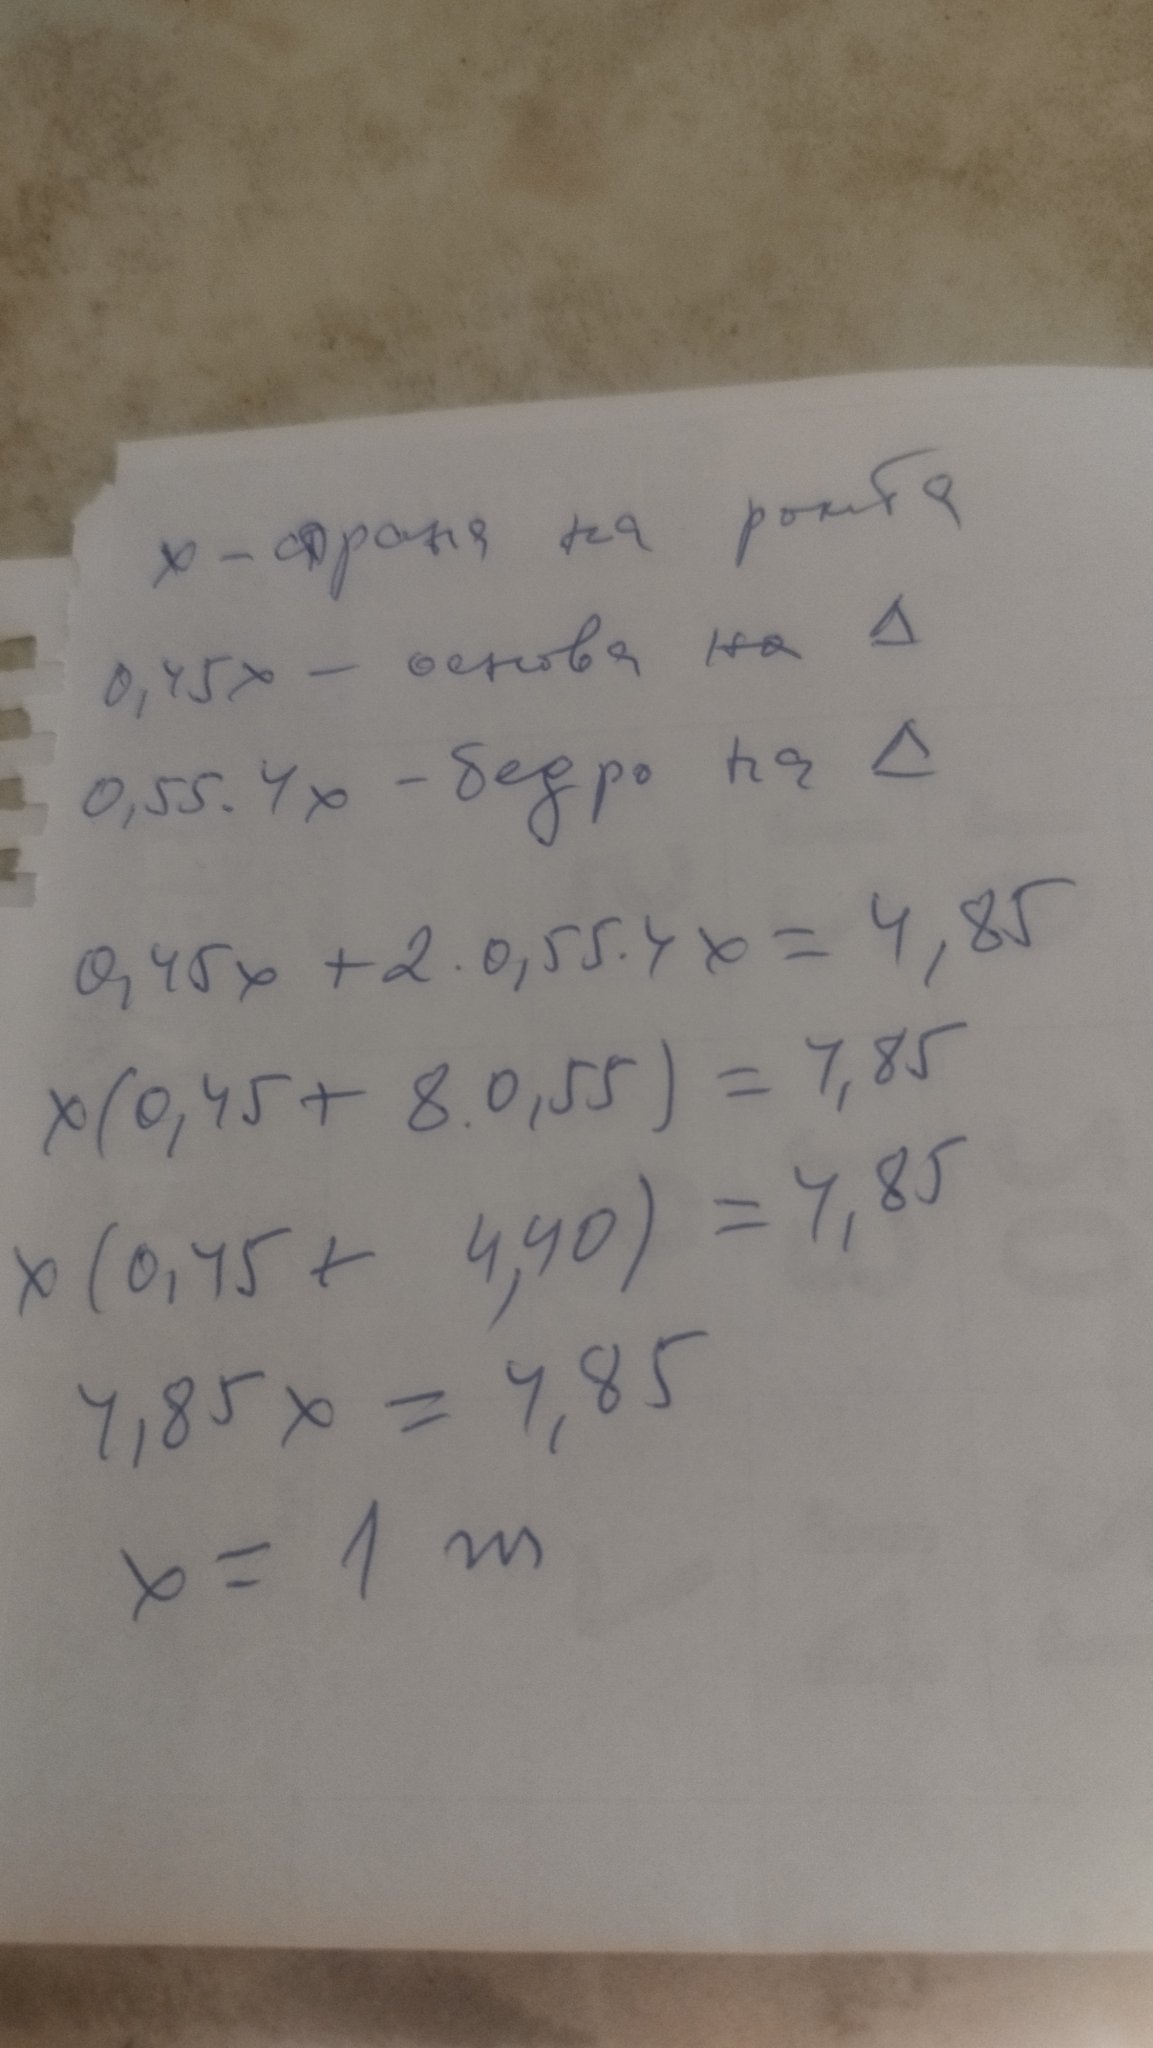 x - страна на ромба
0,45x - основа на Δ
0,55.4x - бедро на Δ
0,45x + 2.0,55.4x = 4,85
x(0,45 + 8.0,55) = 4,85
x(0,45 + 4,40) = 4,85
4,85x = 4,85
x = 1 m